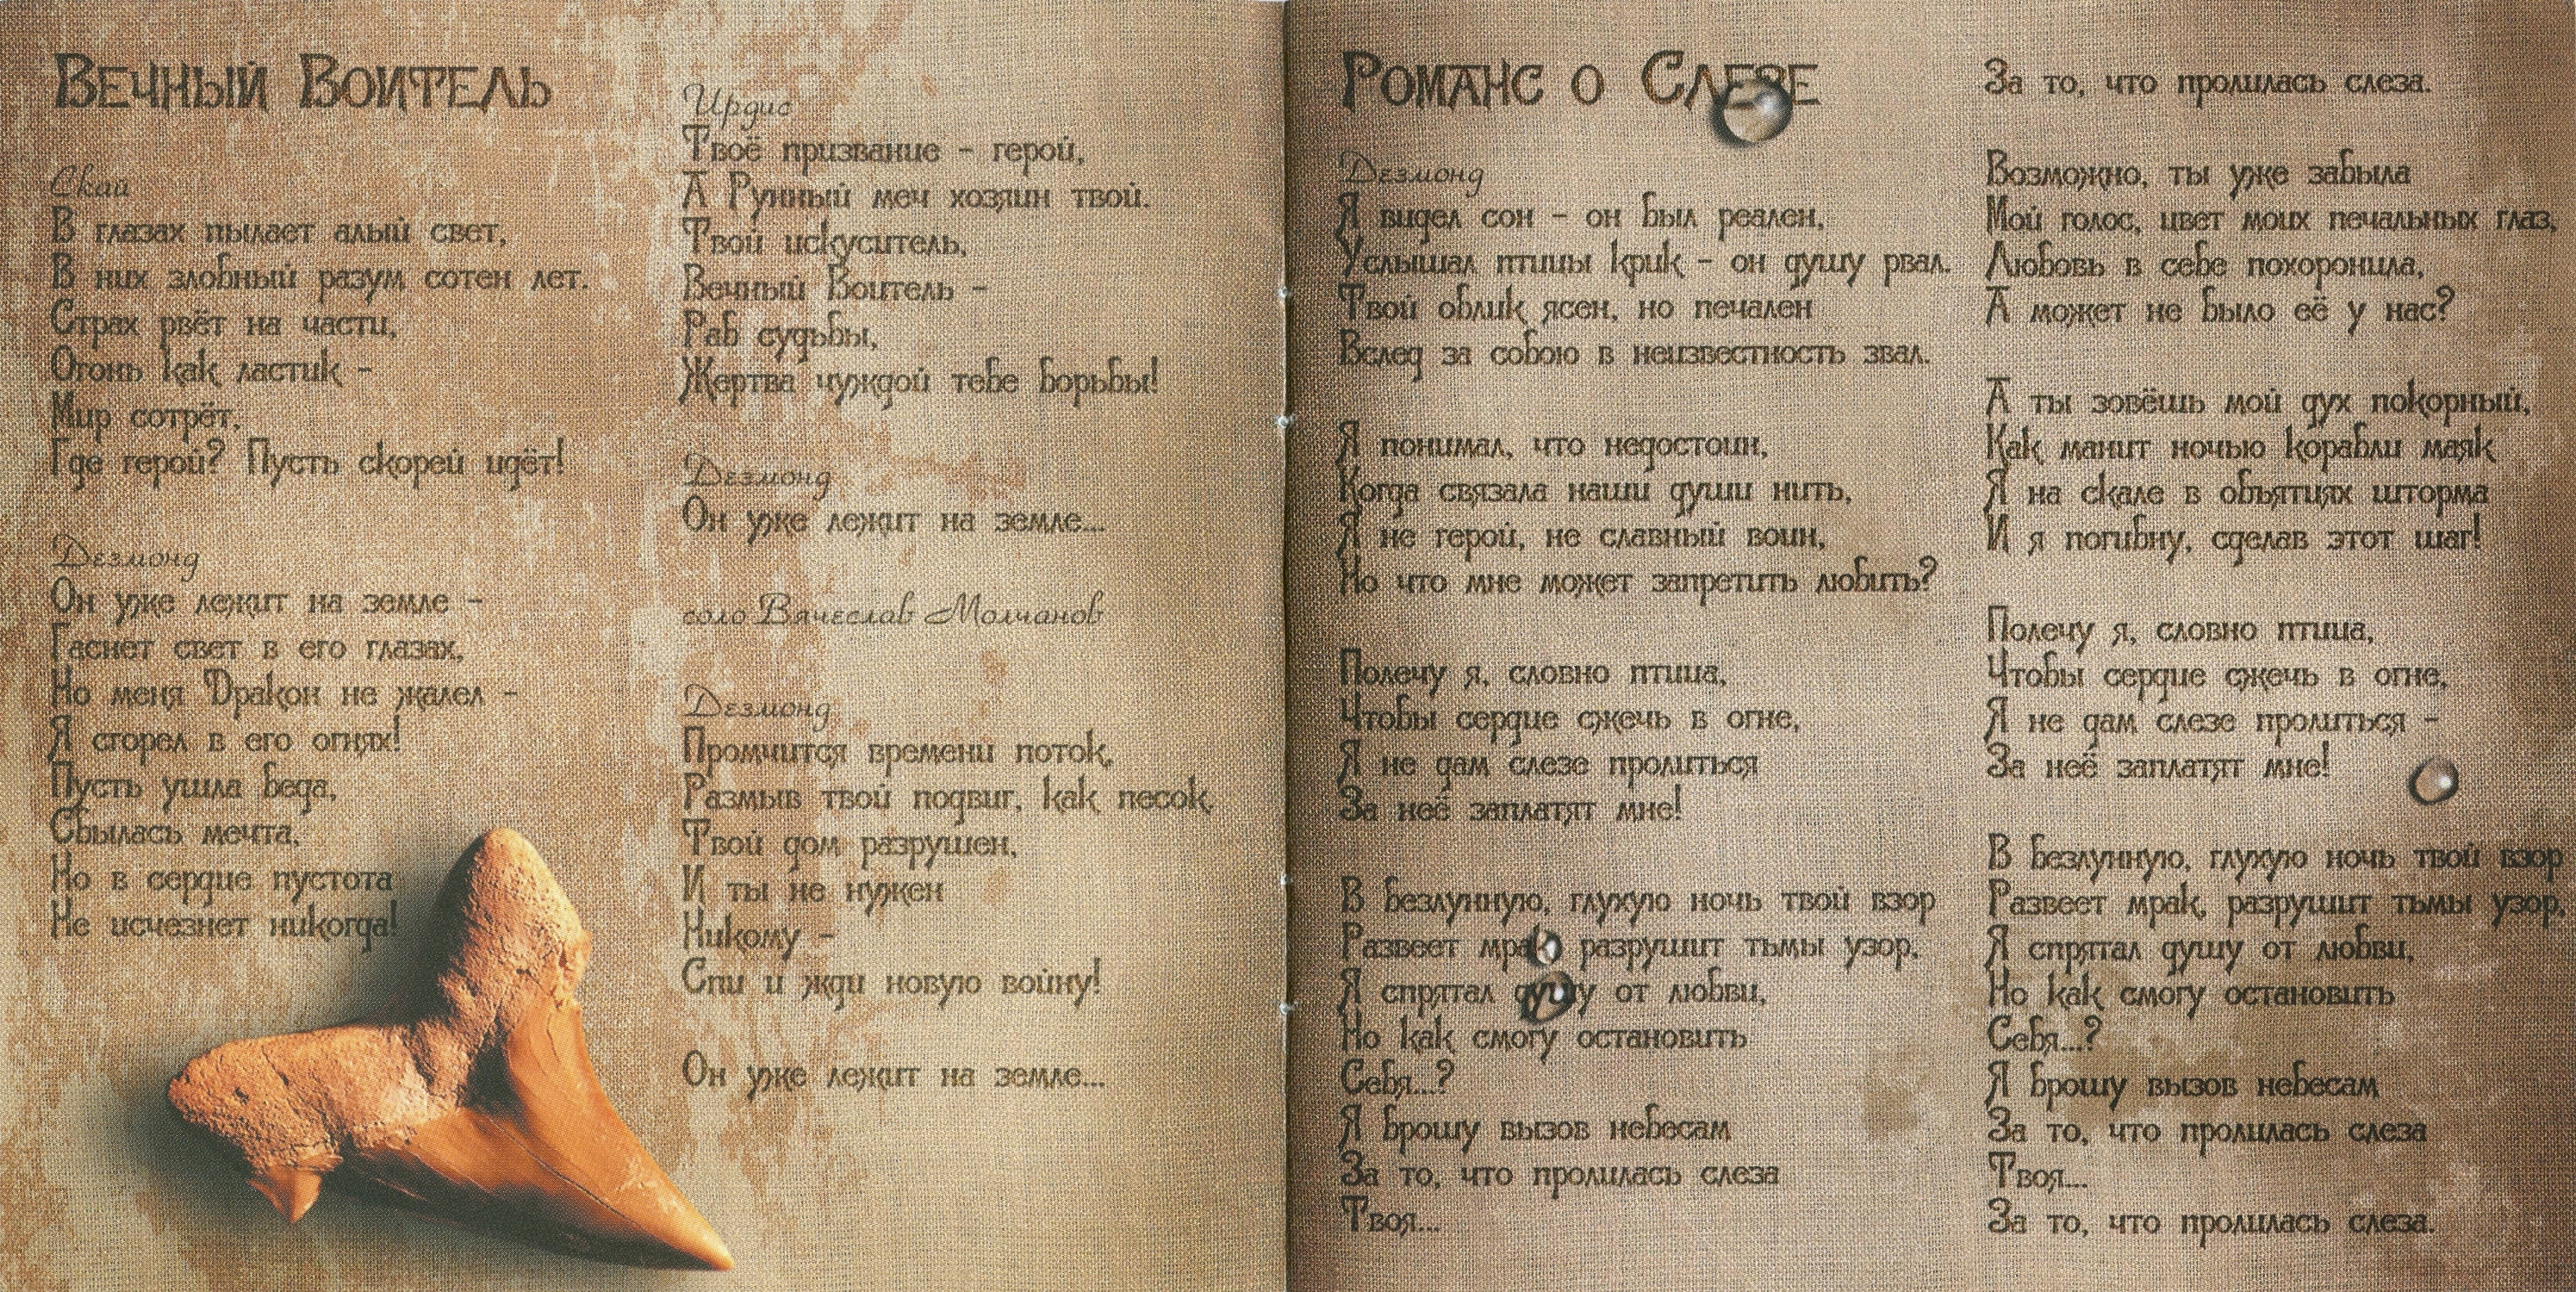 Вечный Воитель
Скай
В глазах пылает алый свет,
В них злобный разум сотен лет.
Страх рвёт на части,
Огонь как ластик -
Мир сотрёт,
Где герой? Пусть скорей идёт!
Дезмонд
Он уже лежит на земле -
Гаснет свет в его глазах,
Но меня Дракон не жалел -
Я сгорел в его огнях!
Пусть ушла беда,
Сбылась мечта,
Но в сердце пустота
Не исчезнет никогда!
Ирдис
Твоё призвание - герой,
А Рунный меч хозяин твой.
Твой искуситель,
Вечный Воитель -
Раб судьбы,
Жертва чуждой тебе борьбы!
Дезмонд
Он уже лежит на земле...
соло Вячеслав Молчанов
Дезмонд
Промчится времени поток,
Размыв твой подвиг, как песок,
Твой дом разрушен,
И ты не нужен
Никому -
Спи и жди новую войну!
Он уже лежит на земле...
Романс о Слезе
Дезмонд
Я видел сон - он был реален,
Услышал птицы крик - он душу рвал.
Твой облик ясен, но печален
Вслед за собою в неизвестность звал.
Я понимал, что недостоин,
Когда связала наши души нить,
Я не герой, не славный воин,
Но что мне может запретить любить?
Полечу я, словно птица,
Чтобы сердце сжечь в огне,
Я не дам слезе пролиться
За неё заплатят мне!
В безлунную, глухую ночь твой взор
Развеет мрак, разрушит тьмы узор,
Я спрятал душу от любви,
Но как смогу остановить
Себя...?
Я брошу вызов небесам
За то, что пролилась слеза
Твоя...
За то, что пролилась слеза.
Возможно, ты уже забыла
Мой голос, цвет моих печальных глаз,
Любовь в себе похоронила,
А может не было её у нас?
А ты зовёшь мой дух покорный,
Как манит ночью корабли маяк
Я на скале в объятиях шторма
И я погибну, сделав этот шаг!
Полечу я, словно птица,
Чтобы сердце сжечь в огне,
Я не дам слезе пролиться -
За неё заплатят мне!
В безлунную, глухую ночь твой взор
Развеет мрак, разрушит тьмы узор,
Я спрятал душу от любви,
Но как смогу остановить
Себя...?
Я брошу вызов небесам
За то, что пролилась слеза
Твоя...
За то, что пролилась слеза.